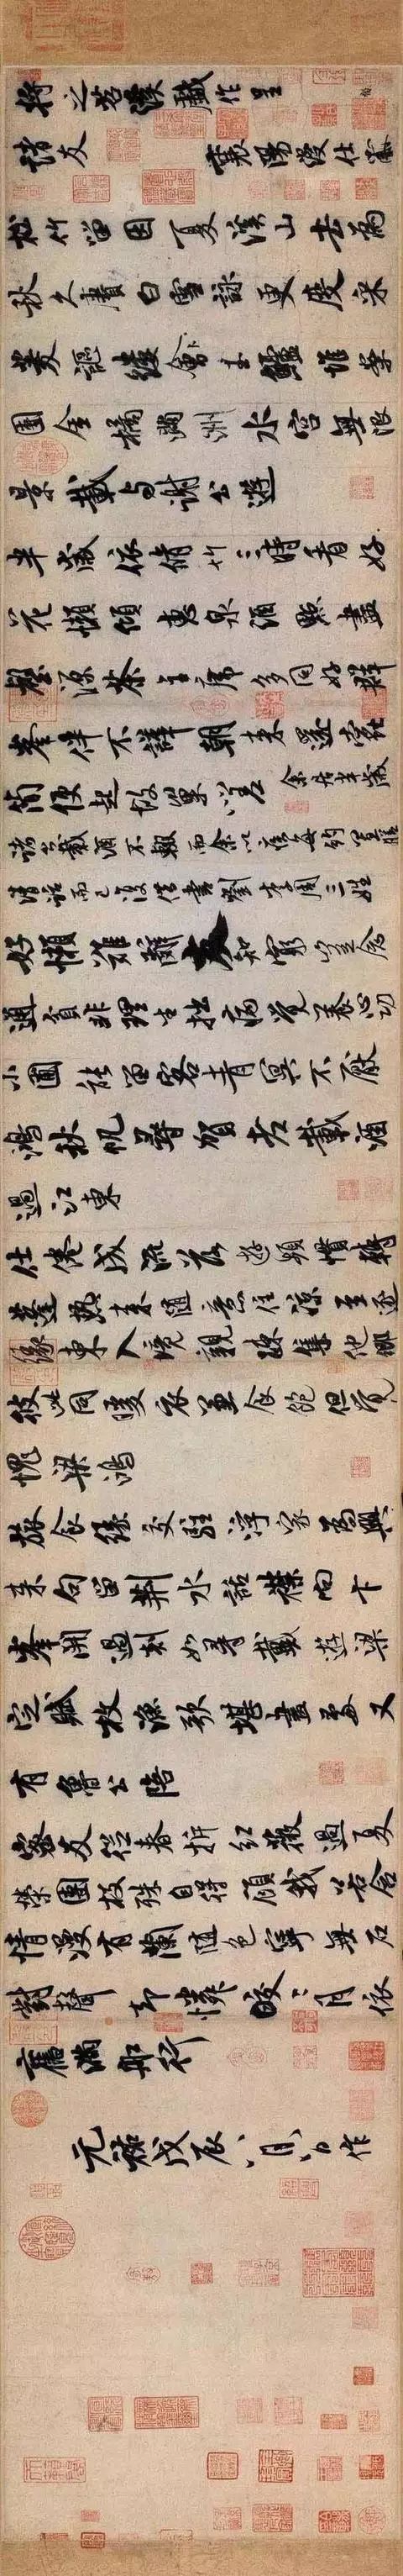 將之苕溪戲作呈
諸友 襄陽漫仕黻
松竹留因夏溪山去為
秋久賡白雪詠更度采
菱謳縷會玉鱸堆案
團金橘滿洲水宮無限
景載與謝公遊
半歲依修竹三時看好
花懶傾惠泉酒點盡
壑源茶主席多同好群
峰伴不譁朝來還蠹
簡便起故巢嗟 余居半歲
諸公載酒不輟而余以疾每約置膳
清話而已復借書劉李周三姓
好懶難辭友知窮豈念
通貧非理生拙病覺養心功
小圃能留客青冥不厭
鴻秋帆尋賀老載酒
過江東
仕倦成流落遊頻慣轉
蓬熱來隨意住涼至逐
緣東入境親疏集他鄉
彼此同暖衣兼食飽但覺
愧梁鴻
旅食緣交駐浮家為興
來句留荊水話襟向卞
峰開過剡如尋戴遊梁
定賦枚漁歌堪畫處又
有魯公陪
密友從春拆紅薇過夏
榮團枝殊自得顧我若含
情漫有蘭隨色寧無石
對聲却憐皎〻月依
舊滿船行
元祐戊辰八月八日作